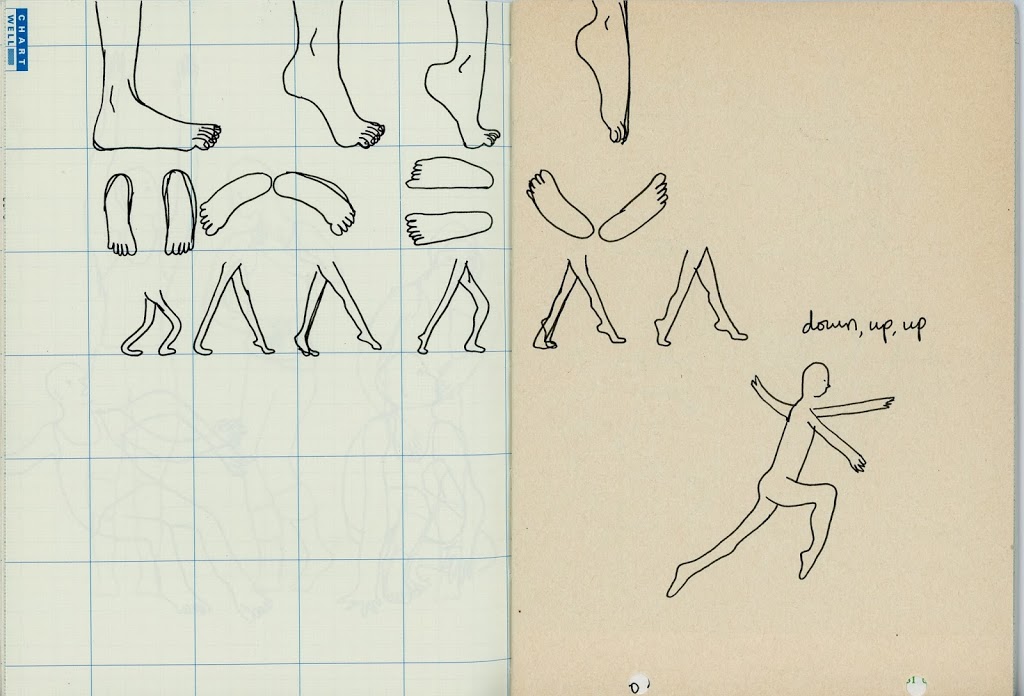 CHART
WELL
down, up, up